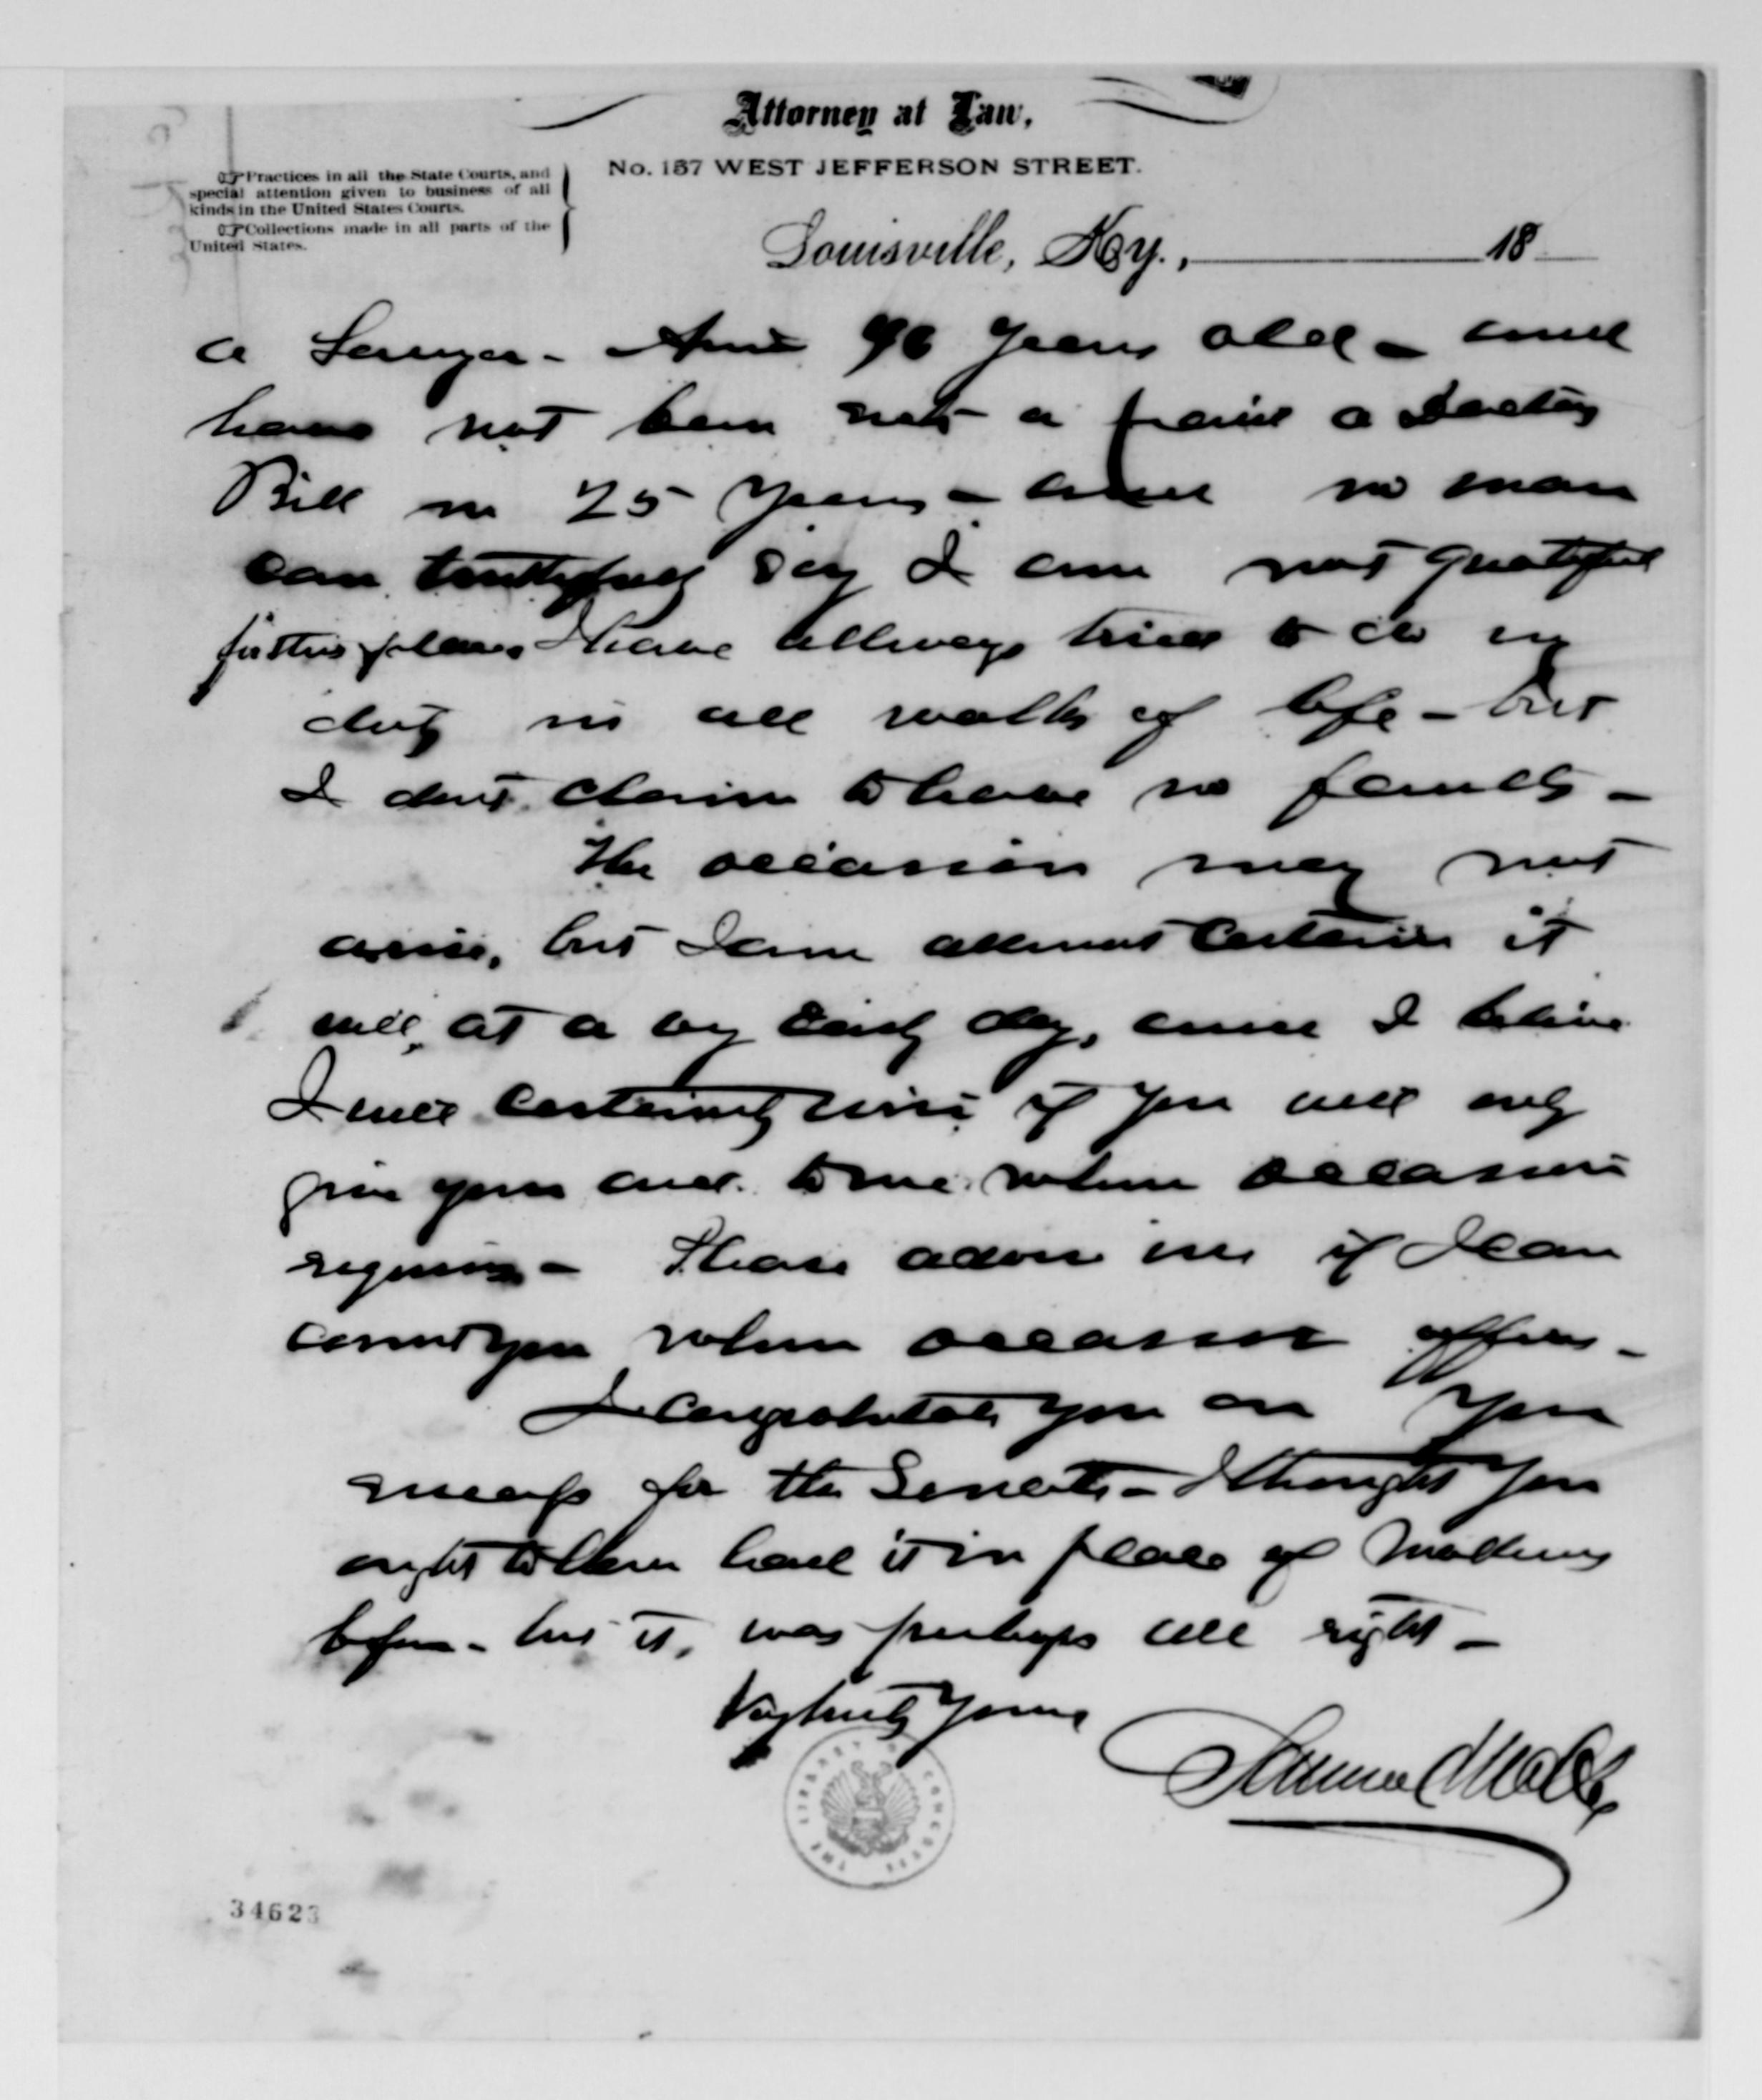 Attorney at Law,
No. 157 WEST JEFFERSON STREET.
Practices in all the State Courts, and
special attention given to business of all
kinds in the United States Courts.
Collections made in all parts of the
United States.
Louisville, Ky., 18
a Lawyer - Am 46 years old - and
have not been a Doctors
Bill in 25 years - and no man
can truthfully say I am not
for this place I have allways tried to do my
duty in all walks of life - but
I dont claim to have no faults -
The occasion may not
arise, but I am allmost certain it
will, at a early day, and I believe
I will certainly win if you will only
give your aid to me when occasion
requires - Please advise me if I can
count you when occasion offers -
I congratulate you on your
success for the Senate - I thought you
ought to have had it in place of Mathews
before - but it, was perhaps all right -
Yours
Samuel
THE LIBRARY OF CONGRESS
34623